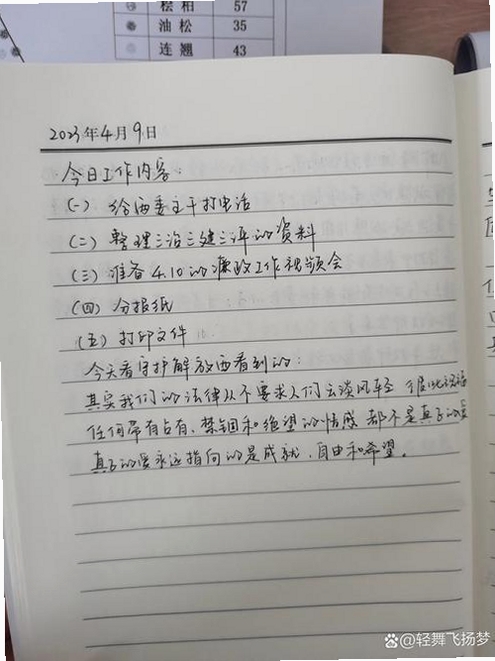 桧柏 57
油松 35
连翘 43
2023年4月9日
今日工作内容：
(一) 给两委主干打电话
(二) 整理三治三建三评的资料
(三) 准备4.10的廉政工作视频会
(四) 分报纸
(五) 打印文件
今天看守护解放西看到的：
其实我们的法律从不要求人们云淡风轻
任何带有占有、禁锢和绝望的情感都不是真正的爱
真正的爱永远指向的是成就、自由和希望。
@轻舞飞扬梦